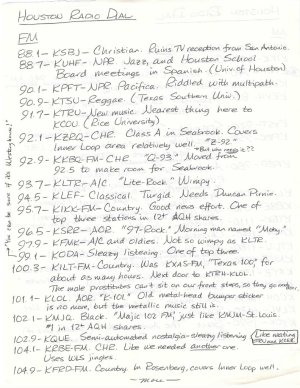 HOUSTON RADIO DIAL
FM
88.1 - KSBJ - Christian. Ruins TV reception from San Antonio.
88.7 - KUHF - NPR Jazz, and Houston School
Board meetings in Spanish (Univ. of Houston)
90.1 - KPFT - NPR Pacifica. Riddled with multipath.
90.9 - KTSU - Reggae. (Texas Southern Univ.)
91.7 - KTRU - New music. Nearest thing here to
KCOU (Rice University)
92.1 - KZRQ - CHR. Class A in Seabrook. Covers
Inner Loop area relatively well. "Z-92"
92.9 - KKBQ-FM - CHR. "Q-93" Moved from
92.5 to make room for Seabrook.
93.7 - KLTR - A/C. "Lite-Rock." Wimpy.
94.5 - KLEF - Classical. Turgid. Needs Duncan Pirnie.
95.7 - KIKK-FM - Country. Good news effort. One of
top three stations in 12+ AQH shares.
96.5 - KSRR - AOR. "97-Rock." Morning man named "Moby."
97.9 - KFMK - A/C and oldies. Not so wimpy as KLTR.
99.1 - KODA - Sleazy listening. One of top three.
100.3 - KILT-FM - Country. Was KXAS-FM, "Texas 100," for
about as many months. Next door to
The male prostitutes can't sit on our front stairs, so they go
101.1 - KLOL - AOR. "K-101" Old metal-head bumper sticker
is no more, but the metallic music still is.
102.1 - KMJQ. Black. "Majic 102 FM," just like KMJM-St. Louis.
#1 in 12+ AQH shares.
102.9 - KQUE. Semi-automated nostalgia - sleazy listening
104.1 - KRBE-FM. CHR. Like we needed another one.
Uses WLS jingles.
104.9 - KFRD-FM. Country. In Rosenberg, covers Inner Loop well.
- more -